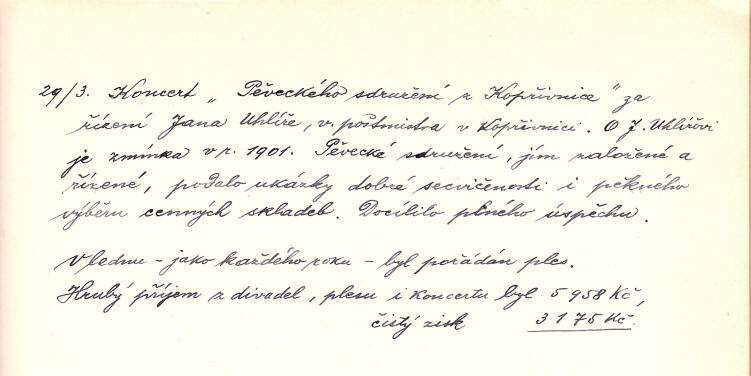 29/3. Koncert „Pěveckého sdružení z Kopřivnice" za
řízení Jana Uhlíře, v. poštmistra v Kopřivnici. O J. Uhlířovi
je zmínka v r. 1901. Pěvecké sdružení, jím založené a
řízené, podalo ukázky dobré secvičenosti i pěkného
výběru cenných skladeb. Docílilo plného úspěchu.
V lednu – jako každého roku – byl pořádán ples.
Hrubý příjem z divadel, plesu i koncertu byl 5 958 Kč,
čistý zisk 3 175 Kč.